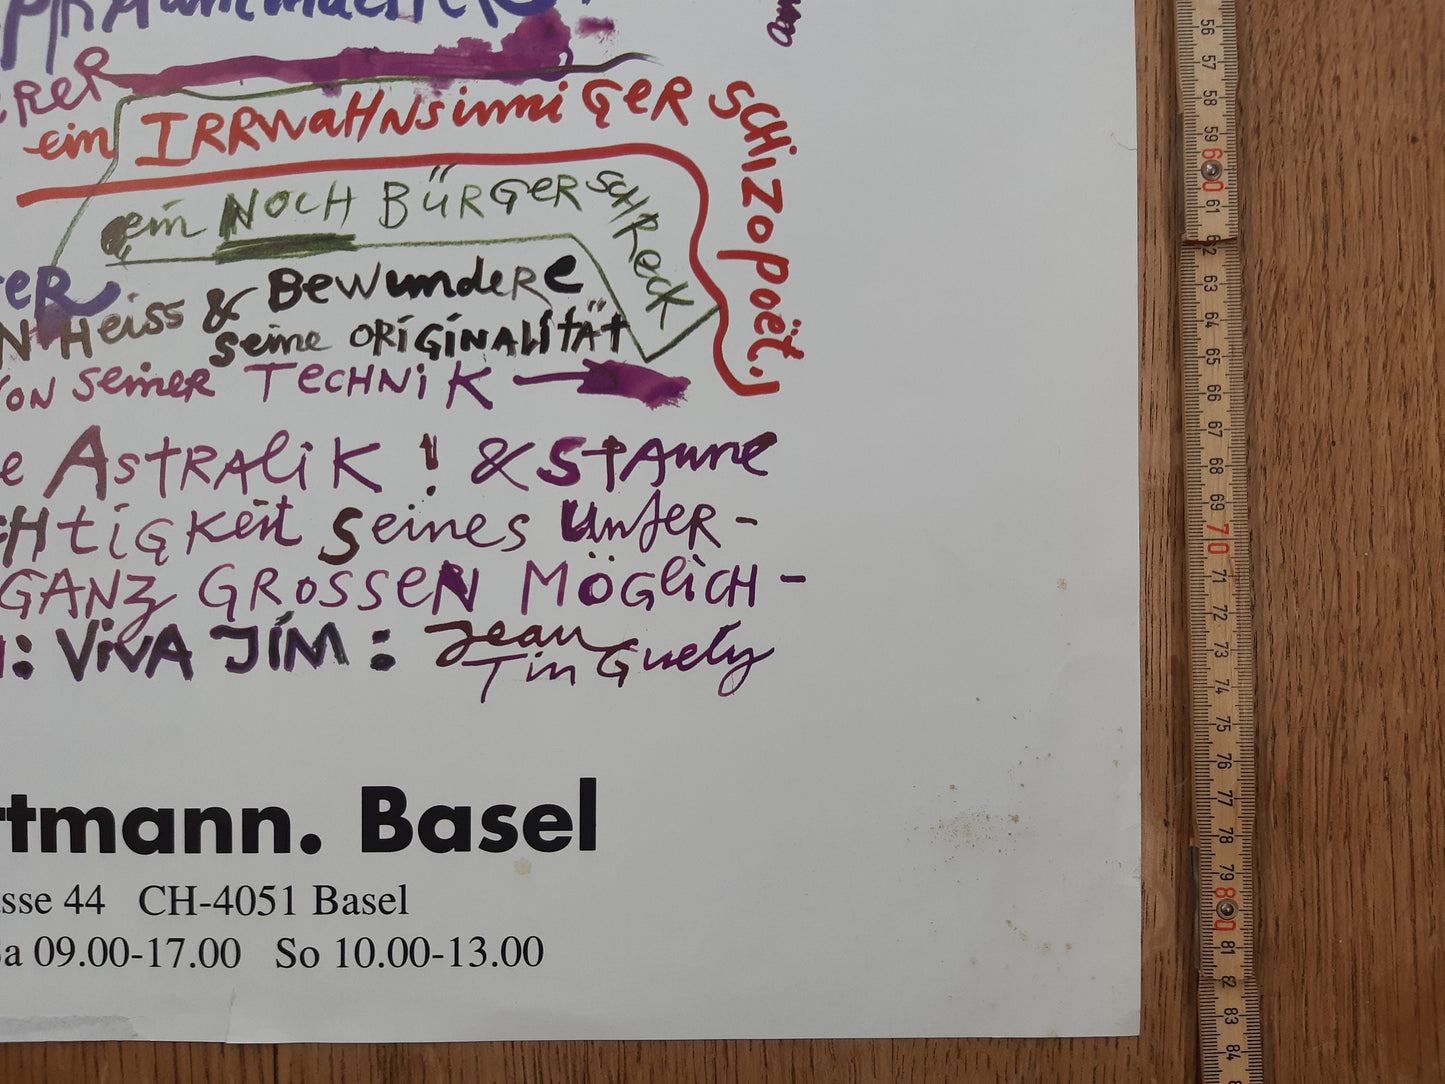 ein IRRWAHNsinniGER SCHIZOPOËT.
ein NOCH BÜRGERSCHRECK
HEiSS & BEWUNDERE
seine ORiGiNALiTÄT
VON SeiNER TECHNiK
ASTRALiK! & STAUNE
seines UNTER-
GANZ GROSSEN MÖGLiCH-
: ViVA JiM : Jean
TinGuely
rtmann. Basel
sse 44 CH-4051 Basel
Sa 09.00-17.00 So 10.00-13.00
56
57
58
59
60
61
62
63
64
65
66
67
68
69
70
71
72
73
74
75
76
77
78
79
80
81
82
83
84